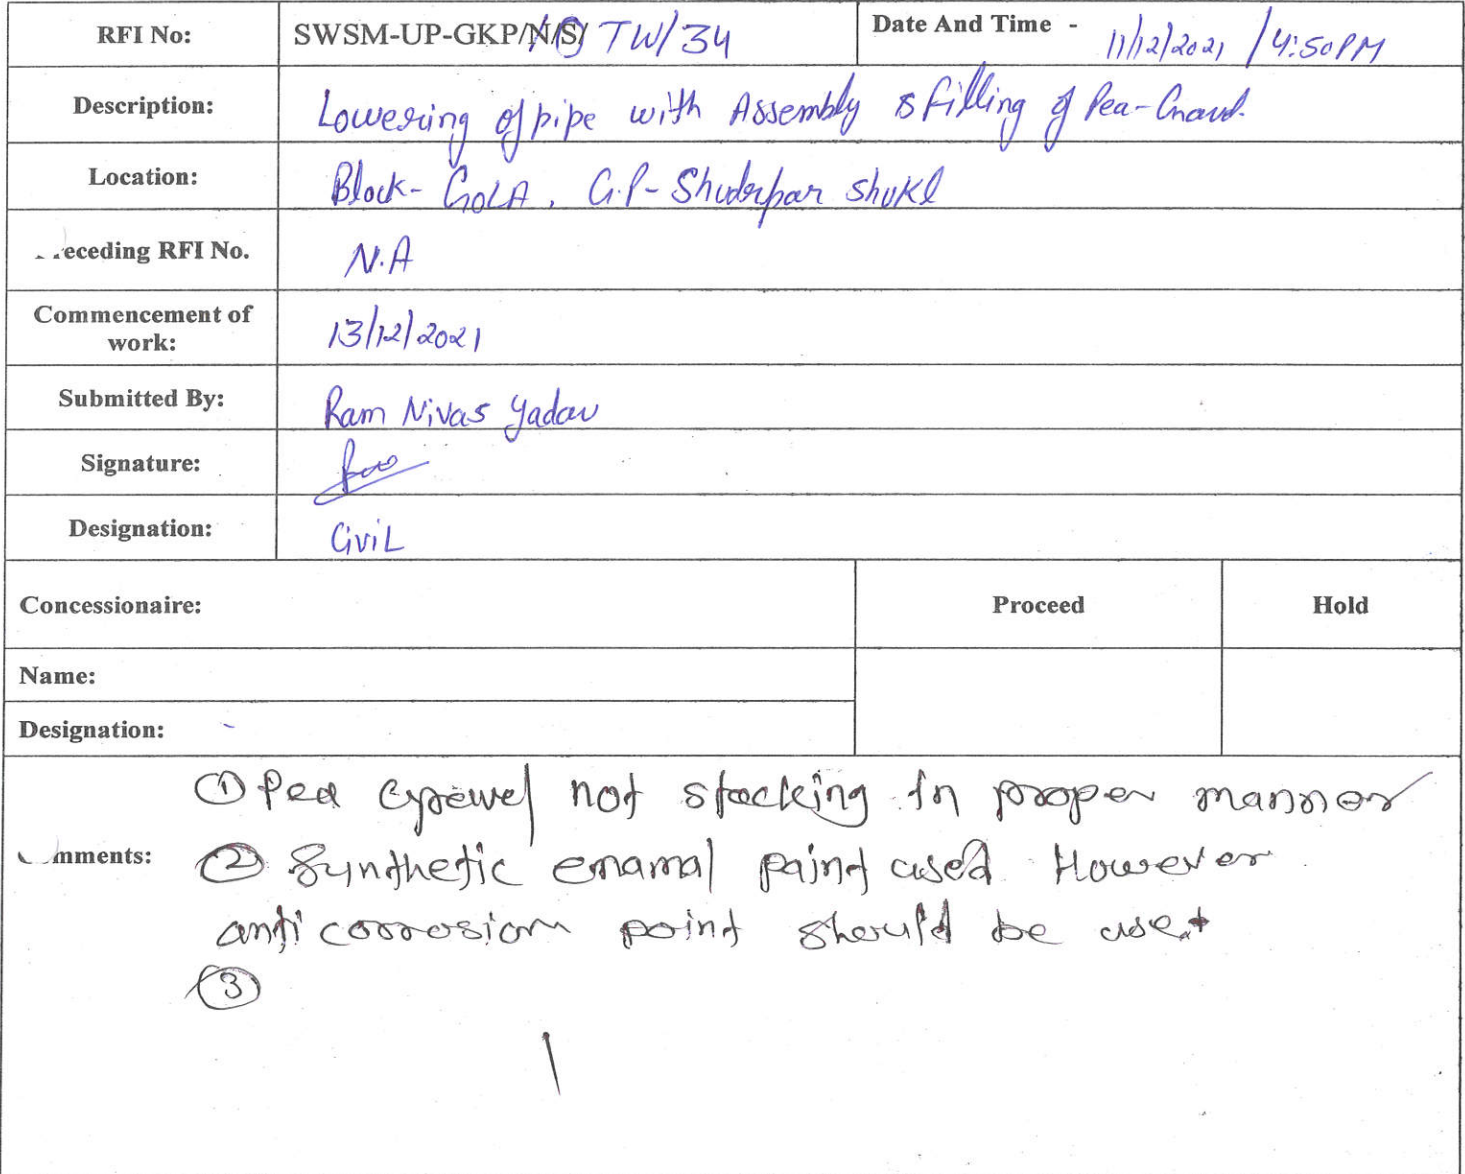 RFI No: SWSM-UP-GKP/N/S/ TW/34 Date And Time - 11/12/2021 / 4:50PM
Description: Lowering of pipe with Assembly & filling of Pea-Gravel.
Location: Block- GOLA, G.P- shukl
eceding RFI No. N.A
Commencement of
work: 13/12/2021
Submitted By: Ram Nivas Yadav
Signature:
Designation: Civil
Concessionaire: Proceed Hold
Name:
Designation: -
① Pea not stacking In proper mannor
mments: ② Synthetic enamal paint used However
anti corrosion point should be uset
③